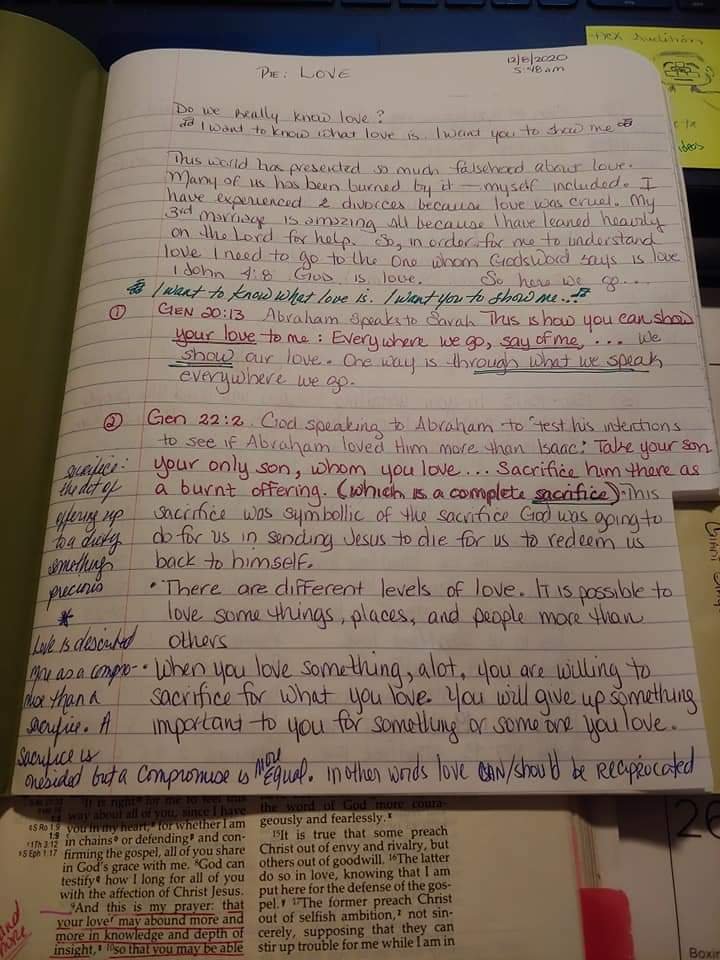 12/8/2020
5:48 am
RE: LOVE
Do we really know love?
♫ I want to know what love is. I want you to show me ♫
This world has presented so much falsehood about love.
Many of us has been burned by it — myself included. I
have experienced 2 divorces because love was cruel. My
3rd marriage is amazing all because I have leaned heavily
on the Lord for help. So, in order for me to understand
love I need to go to the One whom God's Word says is love
1 John 4:8 God is love. So here we go...
♫ I want to know what love is. I want you to show me..♫
① GEN 20:13 Abraham speaks to Sarah This is how you can show
your love to me: Everywhere we go, say of me, ... We
show our love. One way is through what we speak
everywhere we go.
② Gen 22:2 God speaking to Abraham to test his intentions
to see if Abraham loved Him more than Isaac: Take your son
your only son, whom you love... Sacrifice him there as
a burnt offering. (which is a complete sacrifice) This
sacrifice was symbollic of the sacrifice God was going to
do for us in sending Jesus to die for us to redeem us
back to himself.
• There are different levels of love. It is possible to
love some things, places, and people more than
others
• When you love something, alot, you are willing to
sacrifice for what you love. You will give up something
important to you for something or someone you love.
sacrifice:
the act of
offering up
to a diety
something
precious
*
Love is described
more as a compro-
mise than a
sacrifice. A
sacrifice is
onesided but a compromise is more equal. in other words love CAN/should be reciprocated
Hex
ideas
26
Boxin
and
more
1:9
1Th 3:12
Eph 1:17
It is right for me to feel this
way about all of you, since I have
you in my heart, for whether I am
in chains or defending and con-
firming the gospel, all of you share
in God's grace with me. 8God can
testify how I long for all of you
with the affection of Christ Jesus.
9And this is my prayer: that
your love may abound more and
more in knowledge and depth of
insight, 10so that you may be able
the word of God more coura-
geously and fearlessly.
15It is true that some preach
Christ out of envy and rivalry, but
others out of goodwill. 16The latter
do so in love, knowing that I am
put here for the defense of the gos-
pel. 17The former preach Christ
out of selfish ambition, not sin-
cerely, supposing that they can
stir up trouble for me while I am in